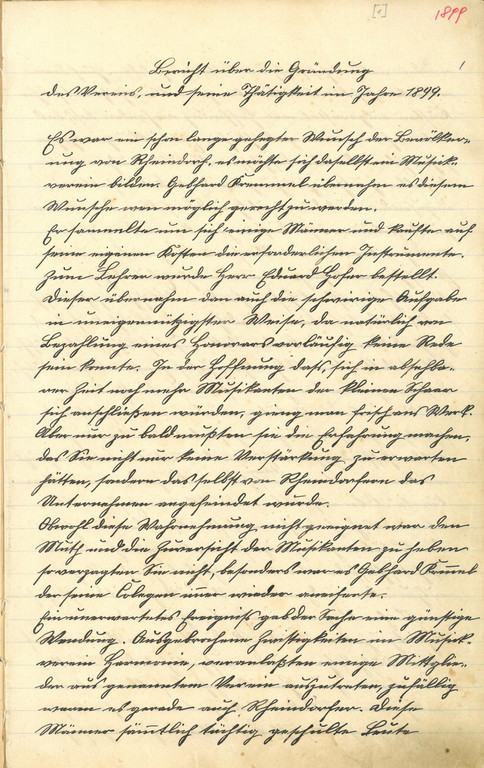 [1]
1899
1
Bericht über die Gründung
des Vereins, und seine Thätigkeit im Jahre 1899.
Es war ein schon lange gehegter Wunsch der Bevölker-
ung von Rheindorf, es möchte sich daselbst ein Musik-
verein bilden. Gebhard Kremmel übernahm es diesem
Wunsche wen möglich gerecht zu werden.
Er sammelte um sich einige Männer und kaufte auf
seine eigenen Kosten die erforderlichen Instrumente.
Zum Lehrer wurde Herr Eduard Hofer bestellt.
Dieser übernahm dan auch die schwierige Aufgabe
in uneigennützigster Weise, da natürlich von
Bezahlung eines Honorars vorläufig keine Rede
sein konnte. In der Hoffnung dass, sich in absehba-
rer Zeit noch mehr Musikanten der kleinen Schaar
sich anschließen würden, gieng man frisch ans Werk.
Aber nur zu bald mußten sie die Erfahrung machen,
das Sie nicht nur keine Verstärkung zu erwarten
hätten, sondern das selbst von Rheindorfern das
Unternehmen angefeindet wurde.
Obwohl diese Wahrnehmung nicht geeignet war den
Muth und die Zuversicht der Musikanten zu heben
so verzagten Sie nicht, besonders war es Gebhard Kremmel
der seine Colegen imer wieder aneiferte.
Ein unerwartetes Ereigniß gab der Sache eine günstige
Wendung. Ausgebrochene Zwistigkeiten im Musik-
verein Harmonie, veranlaßten einige Mitglie-
der aus genanntem Verein auszutreten, zufällig
waren es gerade auch Rheindorfer. Diese
Männer sämmtlich tüchtig geschulte Leute